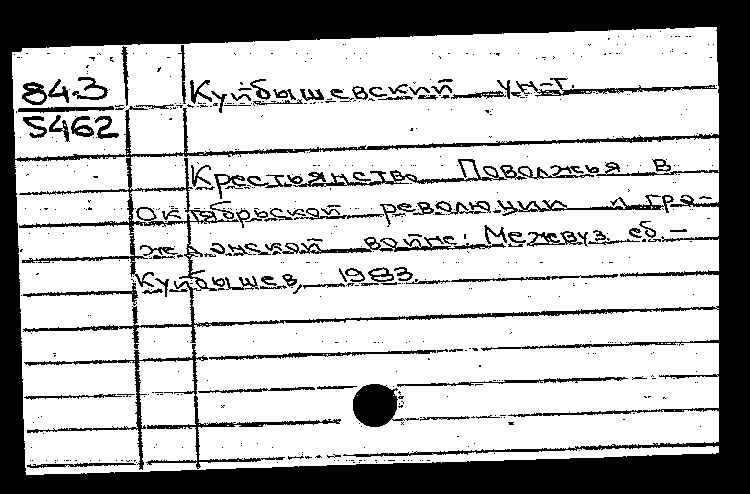 84.3 Куйбышевский ун-т.
5462
Крестьянство Поволжья в
Октябрьской революции и гра-
жданской войне: Межвуз. сб. –
Куйбышев, 1983.